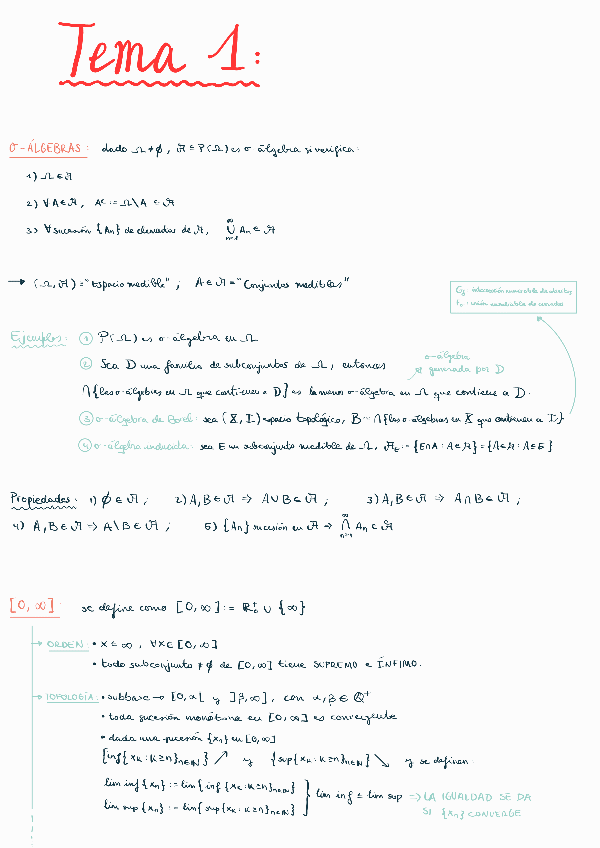 Tema 1:
σ-ÁLGEBRAS: dado Ω ≠ ∅, 𝒜 ⊆ P(Ω) es σ álgebra si verifica:
1) Ω ∈ 𝒜
2) ∀A ∈ 𝒜, Aᶜ := Ω\A ∈ 𝒜
3) ∀ sucesión {An} de elementos de 𝒜, ∞∪n=1 An ∈ 𝒜
→ (Ω, 𝒜) = "Espacio medible"; A ∈ 𝒜 = "Conjuntos medibles"
Gδ: intersección numerable de abiertos
Fσ: unión numerable de cerrados
Ejemplos: ① P(Ω) es σ álgebra en Ω
② Sea D una familia de subconjuntos de Ω, entonces
σ-álgebra generada por D
∩{las σ-álgebras en Ω que contienen a D} es la menor σ-álgebra en Ω que contiene a D.
③ σ-álgebra de Borel: sea (X, T) espacio topológico, B = ∩{las σ álgebras en X que contienen a T}
④ σ-álgebra inducida: sea E un subconjunto medible de Ω, 𝒜E := {E∩A : A∈𝒜} = {A∈𝒜 : A⊆E}
Propiedades: 1) ∅ ∈ 𝒜; 2) A,B ∈ 𝒜 ⇒ A∪B ∈ 𝒜; 3) A,B ∈ 𝒜 ⇒ A∩B ∈ 𝒜;
4) A,B ∈ 𝒜 ⇒ A\B ∈ 𝒜; 5) {An} sucesión en 𝒜 ⇒ ∞∩n=1 An ∈ 𝒜
[0, ∞]: se define como [0, ∞] := ℝ₀⁺ ∪ {∞}
→ ORDEN • x ≤ ∞, ∀x ∈ [0, ∞]
• todo subconjunto ≠ ∅ de [0, ∞] tiene SUPREMO e ÍNFIMO.
→ TOPOLOGÍA: • subbase → [0, α[ y ]β, ∞], con α, β ∈ ℚ⁺
• toda sucesión monótona en [0, ∞] es convergente
• dada una sucesión {xn} en [0, ∞]
{inf{xk : k≥n}n∈ℕ} ↗ y {sup{xk : k≥n}n∈ℕ} ↘ y se definen:
lim inf {xn} := lim{inf{xk : k≥n}n∈ℕ}
lim sup {xn} := lim{sup{xk : k≥n}n∈ℕ}
} lim inf ≤ lim sup ⇒ LA IGUALDAD SE DA
SI {xn} CONVERGE